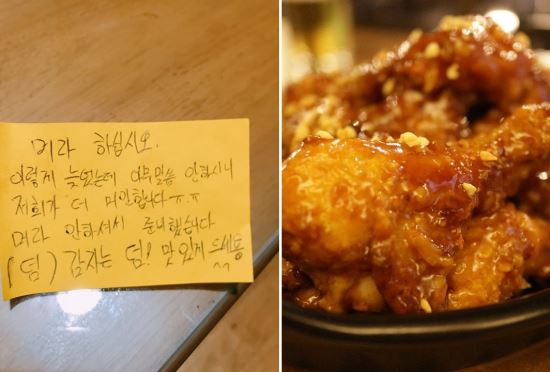 머라 하십시오.
이렇게 늦었는데 아무말씀 안하시니
저희가 더 미안합니다 ㅠㅠ
머라 안하셔서 준비했습니다
(덤) 감자는 덤! 맛있게 드세용
^^